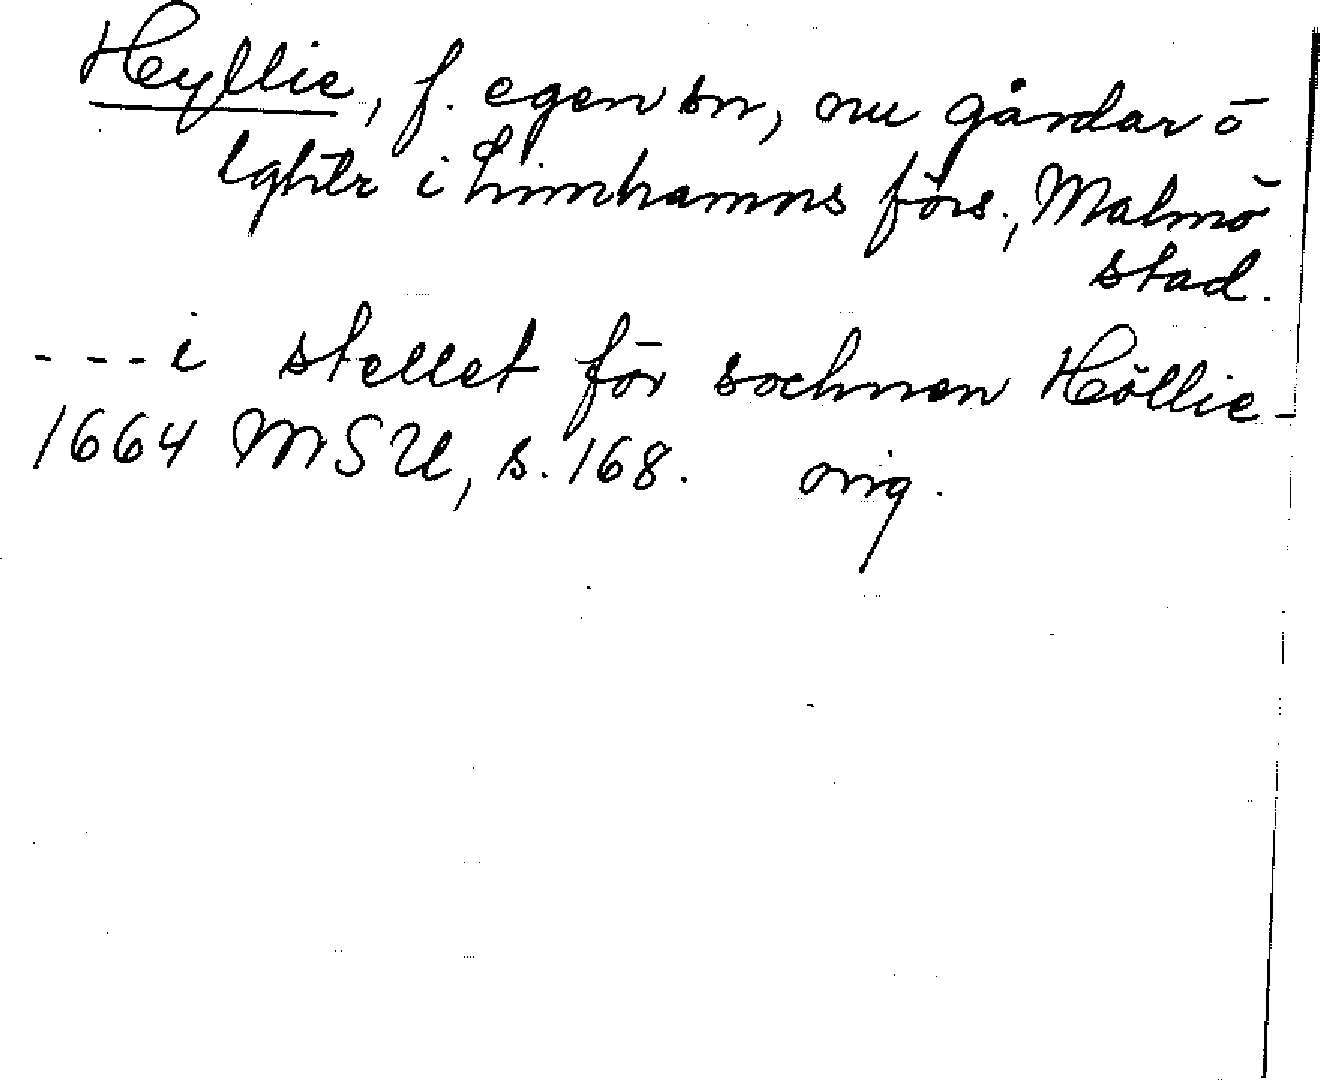 Hyllie, f. egen sn, nu gårdar o
lghtr i Limhamns förs., Malmö
stad.
- - - i stellet för sochnen Höllie -
1664 MSU, s. 168. orig.